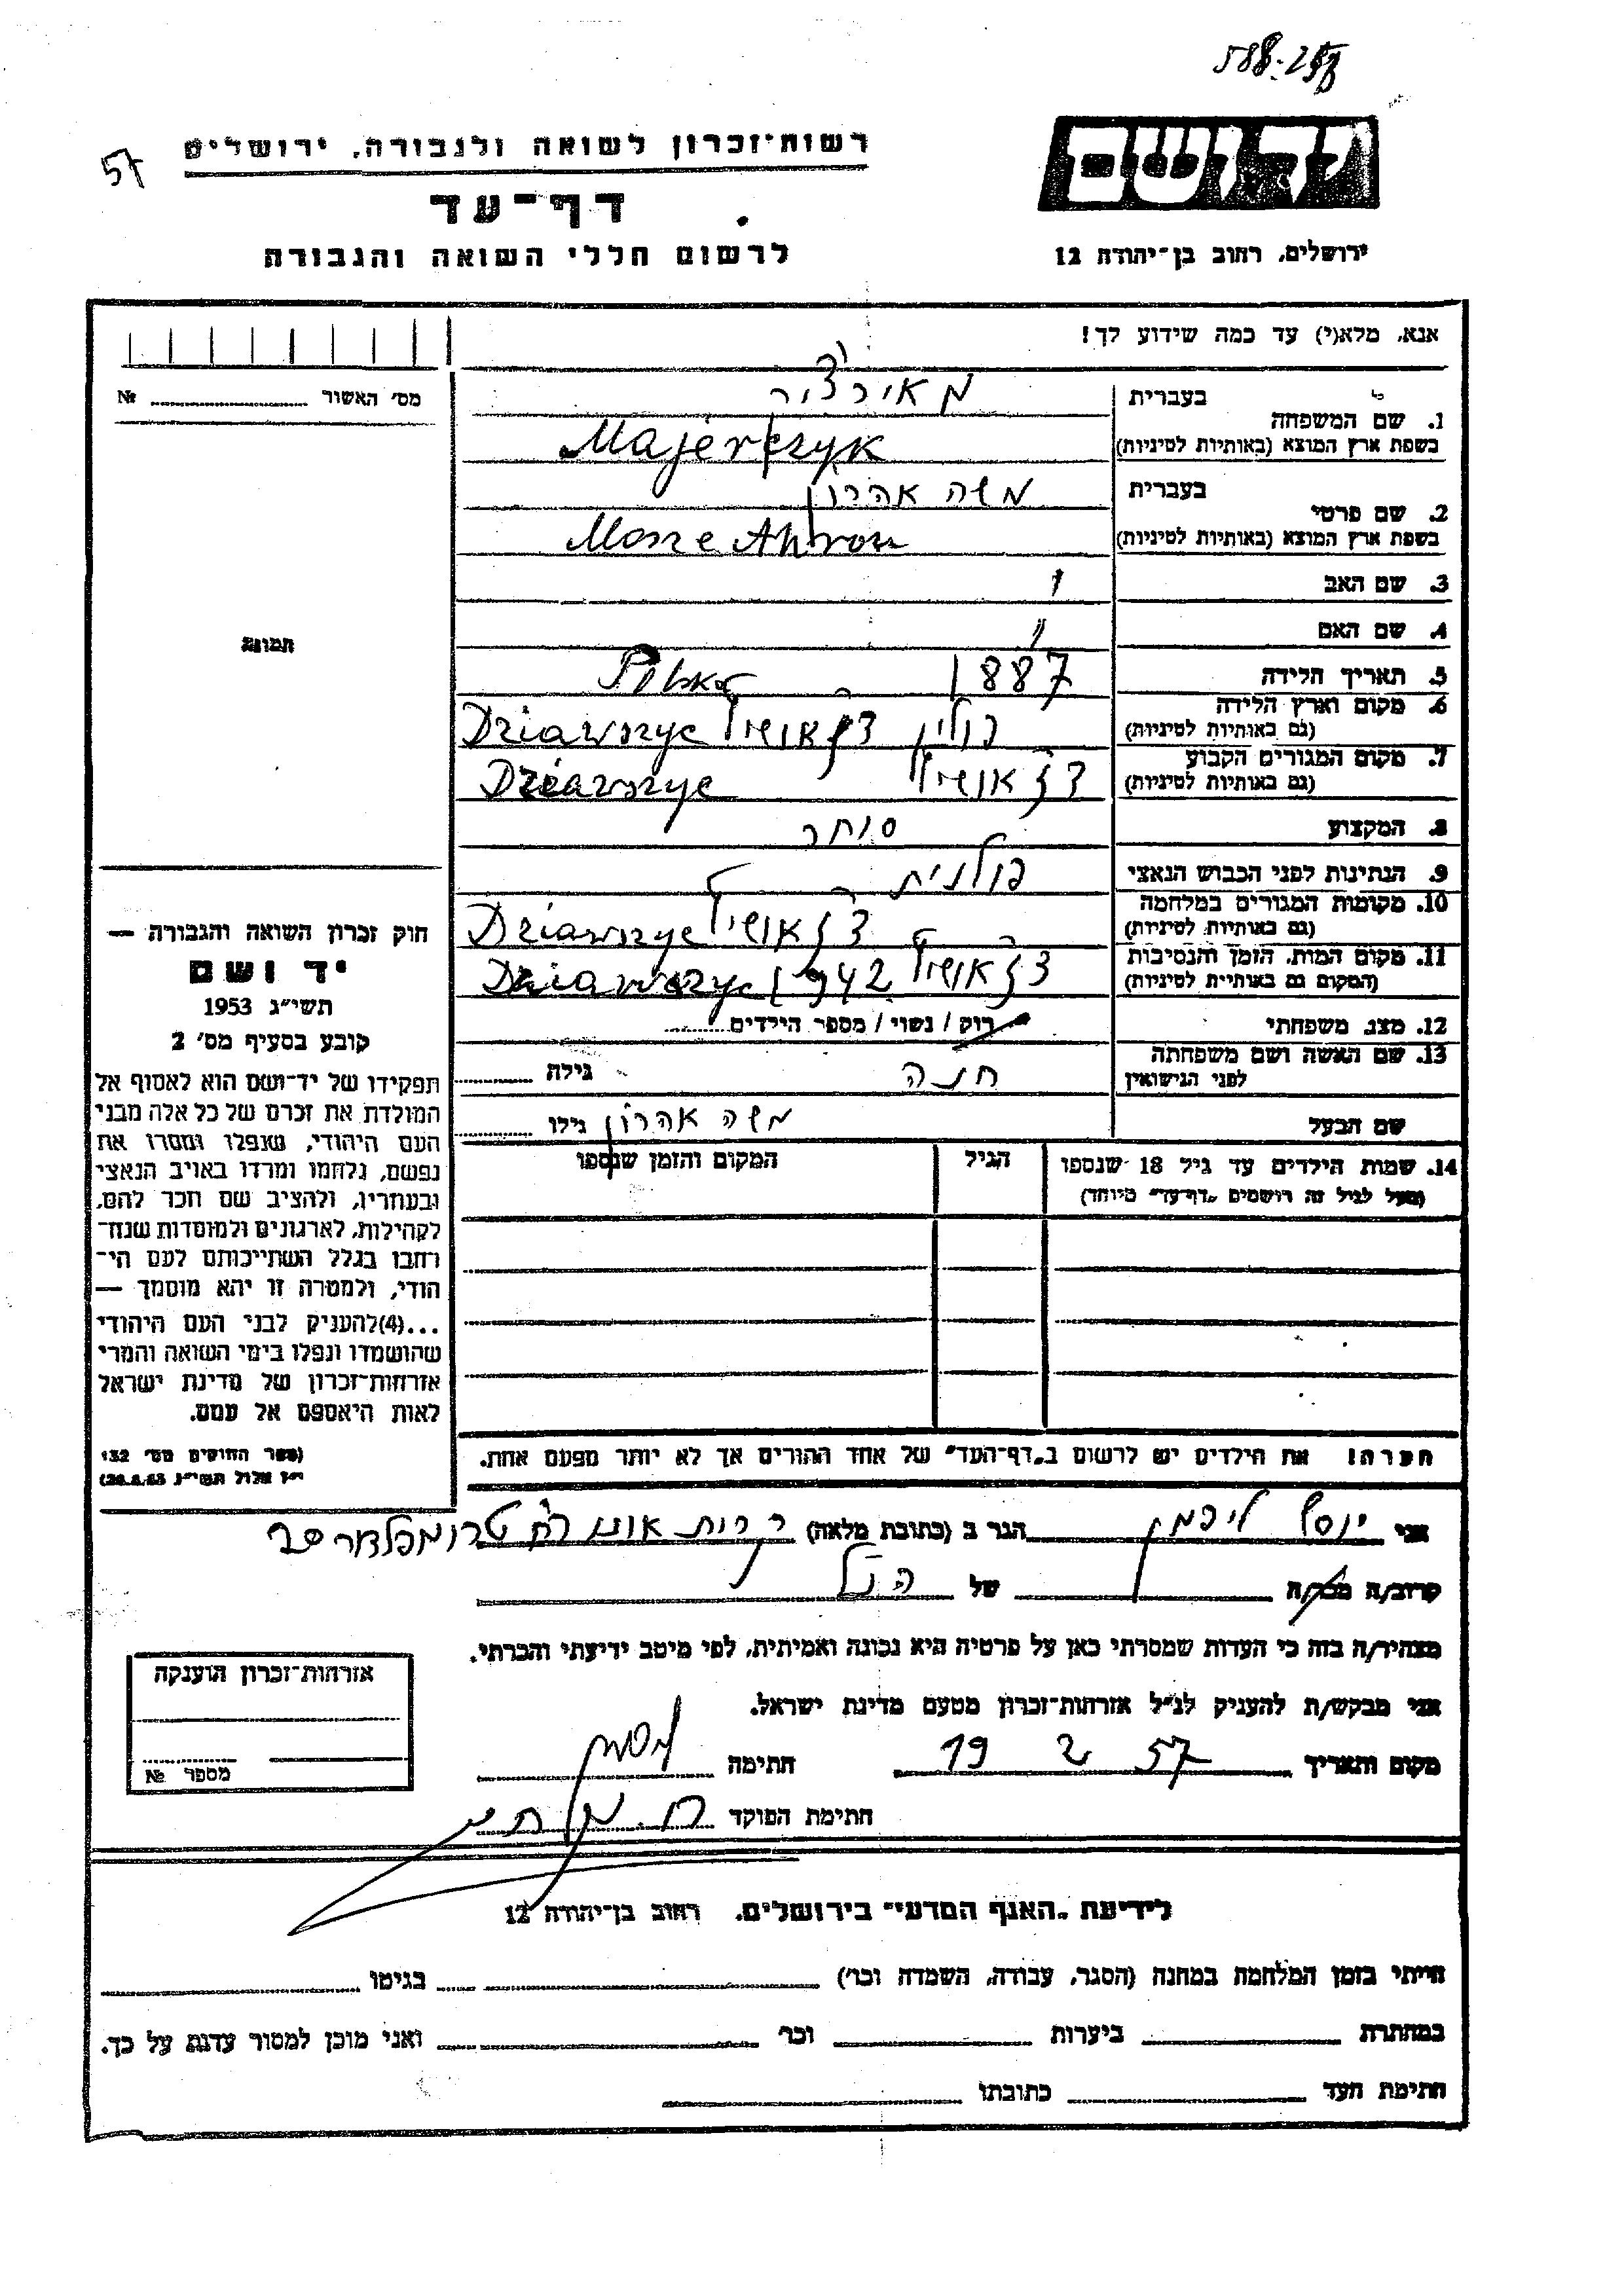 588-288
57
רשות־זכרון לשואה ולגבורה, ירושלים
יד ושם
דף־עד
לרשום חללי השואה והגבורה
ירושלים, רחוב בן־יהודה 12
אנא, מלא(י) עד כמה שידוע לך!
מס׳ האשור № 
1. שם המשפחה
בעברית
בשפת ארץ המוצא (באותיות לטיניות)
Majerczyk
2. שם פרטי
בעברית משה אהרון
בשפת ארץ המוצא (באותיות לטיניות) Mosze Ahron
3. שם האב
4. שם האם
5. תאריך הלידה 1887
6. מקום וארץ הלידה
(גם באותיות לטיניות) פולין
7. מקום המגורים הקבוע
(גם באותיות לטיניות)
8. המקצוע סוחר
9. הנתינות לפני הכבוש הנאצי פולנית
10. מקומות המגורים במלחמה
(גם באותיות לטיניות)
11. מקום המות, הזמן והנסיבות
(המקום גם באותיות לטיניות) 1942
12. מצב משפחתי רוק / נשוי / מספר הילדים
13. שם האשה ושם משפחתה
לפני הנישואין חנה גילה
שם הבעל משה אהרון גילו
14. שמות הילדים עד גיל 18 שנספו הגיל המקום והזמן שנספו
(מעל לגיל זה רושמים „דף־עד״ מיוחד)
הערה! את הילדים יש לרשום ב„דף־העד״ של אחד ההורים אך לא יותר מפעם אחת.
תמונה
חוק זכרון השואה והגבורה —
יד ושם
תשי״ג 1953
קובע בסעיף מס׳ 2
תפקידו של יד־ושם הוא לאסוף אל
המולדת את זכרם של כל אלה מבני
העם היהודי, שנפלו ומסרו את
נפשם, נלחמו ומרדו באויב הנאצי
ובעוזריו, ולהציב שם וזכר להם,
לקהילות, לארגונים ולמוסדות שנח־
רבו בגלל השתייכותם לעם הי־
הודי, ולמטרה זו יהא מוסמך —
...(4) להעניק לבני העם היהודי
שהושמדו ונפלו בימי השואה והמרי
אזרחות־זכרון של מדינת ישראל
לאות היאספם אל עמם.
(ספר החוקים מס׳ 132
י״ז אלול תשי״ג 28.8.53)
אני יוסף ליפמן הגר ב (כתובת מלאה)
קרוב/ה מכר/ה של הנ״ל
מצהיר/ה בזה כי העדות שמסרתי כאן על פרטיה היא נכונה ואמיתית, לפי מיטב ידיעתי והכרתי.
אני מבקש/ת להעניק לנ״ל אזרחות־זכרון מטעם מדינת ישראל.
מקום ותאריך 19 2 57 חתימה
חתימת הפוקד
אזרחות־זכרון הוענקה
מספר №
לידיעת „האגף המדעי״ בירושלים, רחוב בן־יהודה 12
הייתי בזמן המלחמה במחנה (הסגר, עבודה, השמדה וכו׳) בגיטו
במחתרת ביערות וכו׳ ואני מוכן למסור עדות על כך.
חתימת העד כתובתו